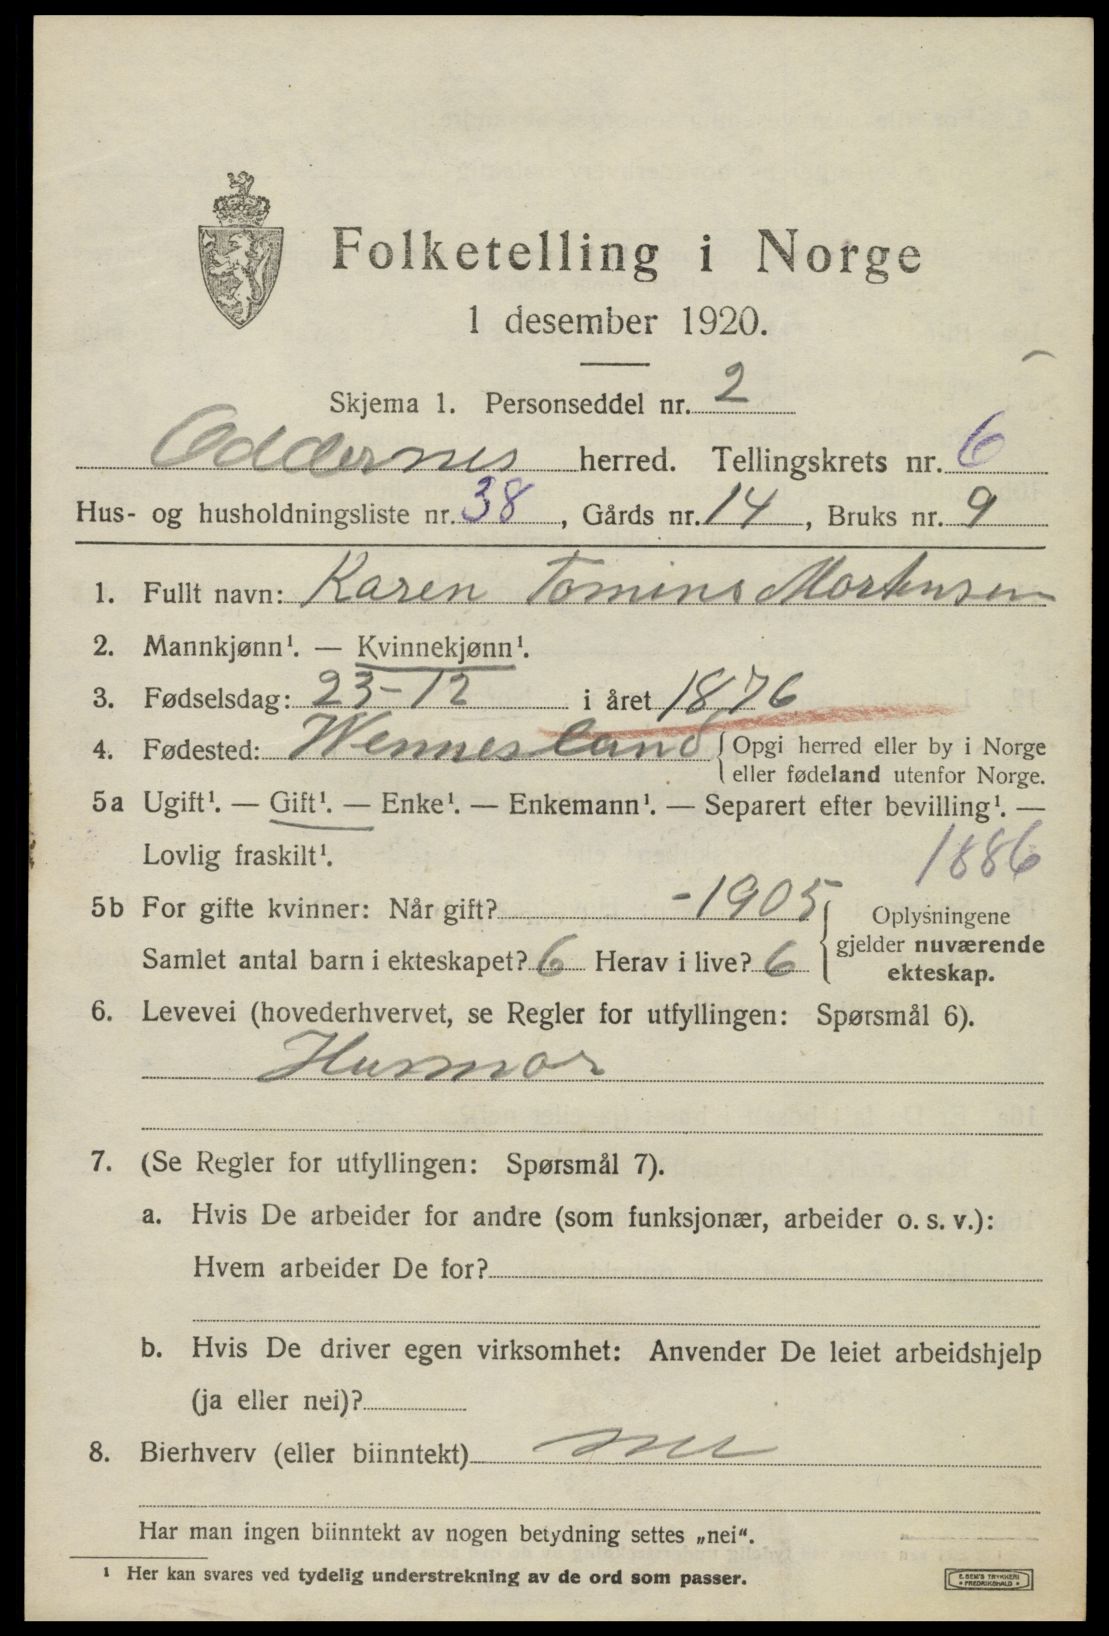 Folketelling i Norge
1 desember 1920.
Skjema 1. Personseddel nr. 2
Oddernes herred. Tellingskrets nr. 6
Hus- og husholdningsliste nr. 38, Gårds nr. 14, Bruks nr. 9
1. Fullt navn: Karen Tomine Mortensen
2. Mannkjønn¹. — Kvinnekjønn¹.
3. Fødselsdag: 23-12 i året 1876
4. Fødested: Wennesland { Opgi herred eller by i Norge
eller fødeland utenfor Norge.
5a Ugift¹. — Gift¹. — Enke¹. — Enkemann¹. — Separert efter bevilling¹. —
Lovlig fraskilt¹. 1886
5b For gifte kvinner: Når gift? -1905 { Oplysningene
gjelder nuværende
ekteskap.
Samlet antal barn i ekteskapet? 6 Herav i live? 6
6. Levevei (hovederhvervet, se Regler for utfyllingen: Spørsmål 6).
Husmor
7. (Se Regler for utfyllingen: Spørsmål 7).
a. Hvis De arbeider for andre (som funksjonær, arbeider o. s. v.):
Hvem arbeider De for?
b. Hvis De driver egen virksomhet: Anvender De leiet arbeidshjelp
(ja eller nei)?
8. Bierhverv (eller biinntekt) nei
Har man ingen biinntekt av nogen betydning settes „nei“.
¹ Her kan svares ved tydelig understrekning av de ord som passer.
E. SEM'S TRYKKERI
FREDRIKSHALD